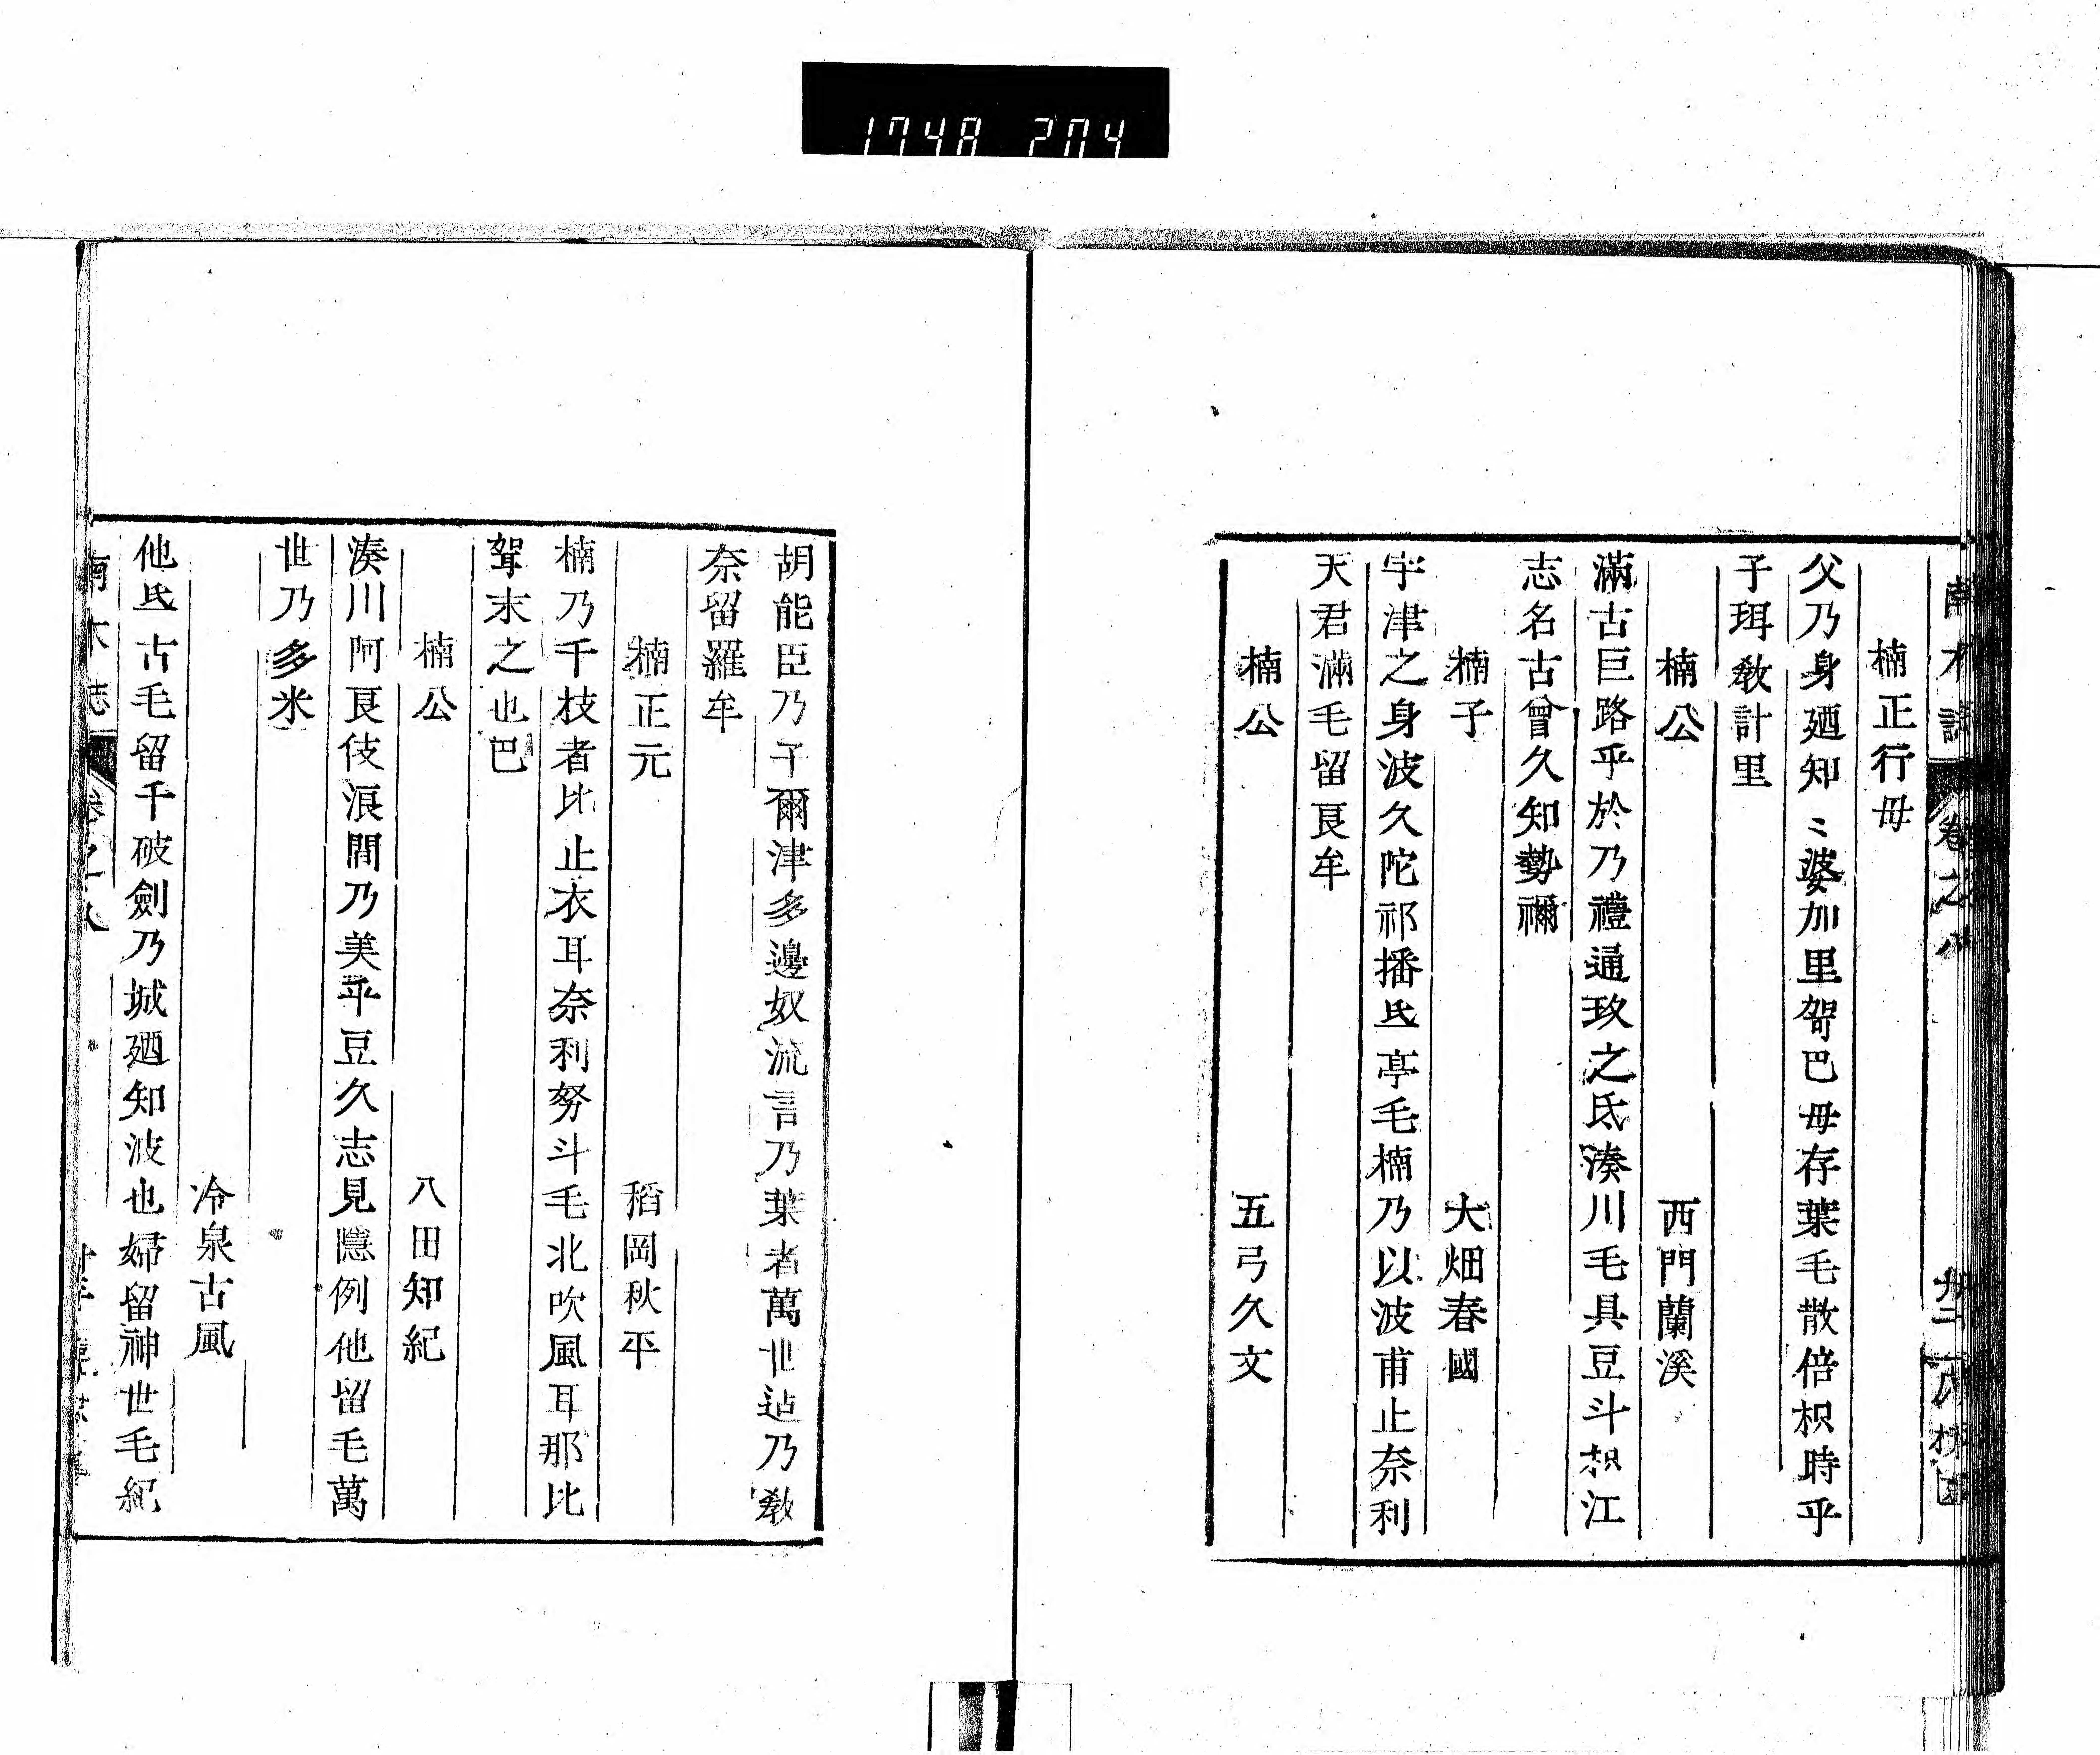 1748 204
楠正行母
父乃身廼知〻婆加里駕巴母存葉毛散倍枳時乎
子珥敎計里
楠公　西門蘭溪
滿古巨路乎於乃禮通玖之氐湊川毛具豆斗枳江
志名古曾久知勢禰
楠子　大畑春國
宇津之身波久陀祁播氐亭毛楠乃以波甫止奈利
天君滿毛留良牟
楠公　五弓久文
胡能臣乃千爾津多邊奴流言乃葉者萬世迠乃敎
奈留羅牟
楠正元　稻岡秋平
楠乃千枝者比止衣耳奈利努斗毛北吹風耳那比
駕末之也巴
楠公　八田知紀
湊川阿良伎浪間乃美乎豆久志見隱例他留毛萬
世乃多米
冷泉古風
他氐古毛留千破劍乃城廼知波也婦留神世毛紀